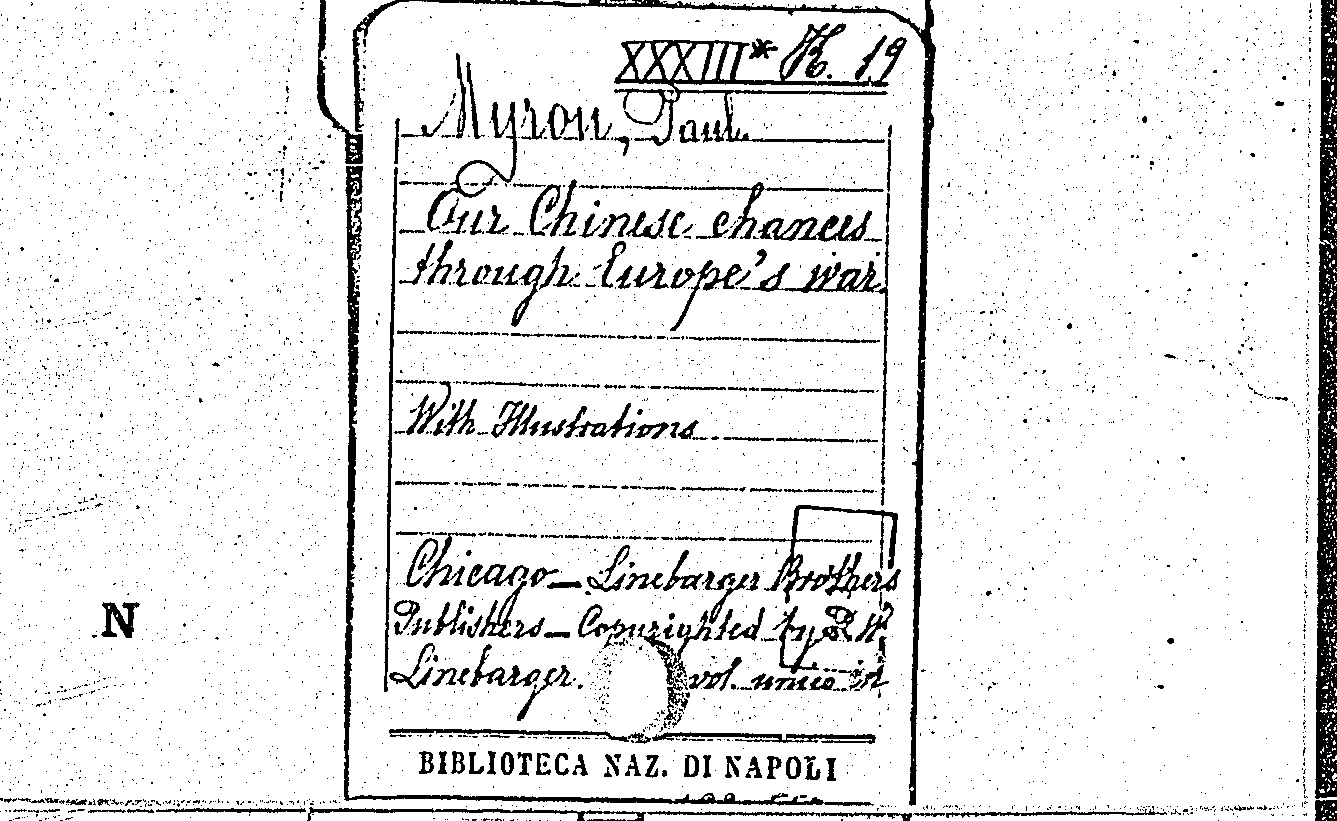 XXXIII* H. 19
Myron, Paul
Our Chinese chances
through Europe's war.
With Illustrations
Chicago — Linebarger Brothers
Publishers — Copyrighted by P. W.
Linebarger. vol. unico in
N
BIBLIOTECA NAZ. DI NAPOLI